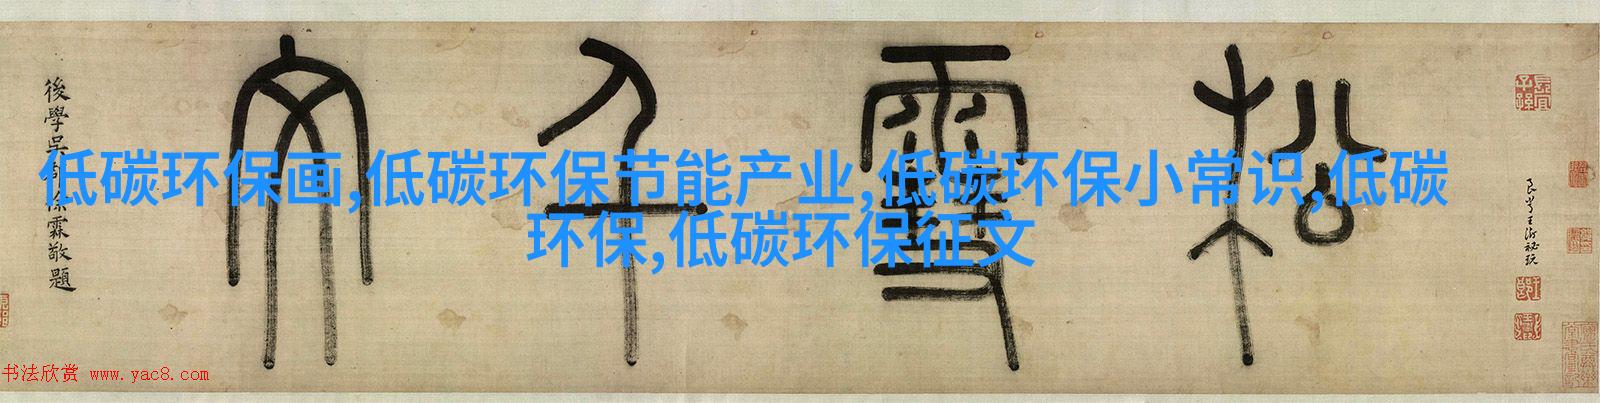 低碳环保画,低碳环保节能产业,低碳环保小常识,低碳
环保,低碳环保征文
松雪千文
後學吳郡徐霖敬題
书法欣赏 www.yac8.com